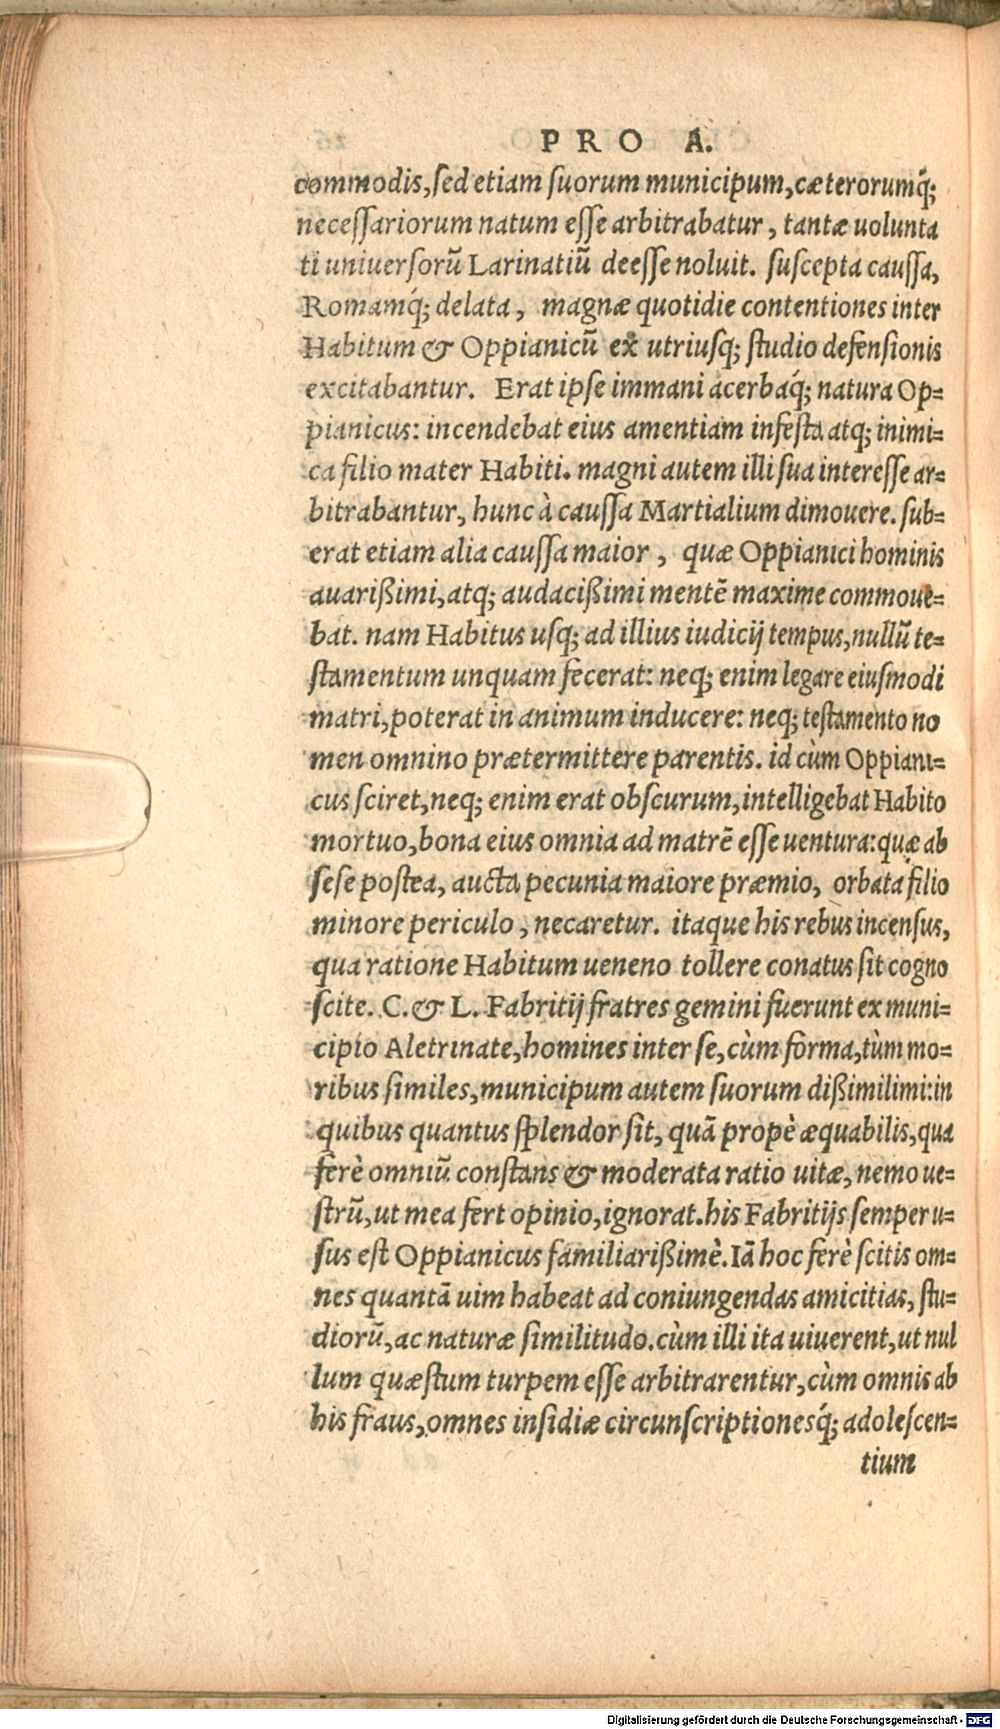 PRO A.
commodis, sed etiam suorum municipum, cæterorumq́;
necessariorum natum esse arbitrabatur, tantæ uolunta
ti uniuersorũ Larinatiũ deesse noluit. suscepta caussa,
Romamq́; delata, magnæ quotidie contentiones inter
Habitum & Oppianicũ ex utriusq; studio defensionis
excitabantur. Erat ipse immani acerbaq́; natura Op=
pianicus: incendebat eius amentiam infesta atq; inimi=
ca filio mater Habiti. magni autem illi sua interesse ar=
bitrabantur, hunc à caussa Martialium dimouere. sub=
erat etiam alia caussa maior, quæ Oppianici hominis
auarißimi, atq; audacißimi mentẽ maxime commoue=
bat. nam Habitus usq; ad illius iudicij tempus, nullũ te=
stamentum unquam fecerat: neq; enim legare eiusmodi
matri, poterat in animum inducere: neq; testamento no
men omnino prætermittere parentis. id cùm Oppiani=
cus sciret, neq; enim erat obscurum, intelligebat Habito
mortuo, bona eius omnia ad matrẽ esse uentura: quæ ab
sese postea, aucta pecunia maiore præmio, orbata filio
minore periculo, necaretur. itaque his rebus incensus,
qua ratione Habitum ueneno tollere conatus sit cogno
scite. C. & L. Fabritij fratres gemini fuerunt ex muni=
cipio Aletrinate, homines inter se, cùm forma, tùm mo=
ribus similes, municipum autem suorum dißimilimi: in
quibus quantus splendor sit, quã propè æquabilis, qua
ferè omniũ constans & moderata ratio uitæ, nemo ue=
strũ, ut mea fert opinio, ignorat. his Fabritijs semper u=
sus est Oppianicus familiarißimè. Iã hoc ferè scitis om=
nes quantã uim habeat ad coniungendas amicitias, stu=
diorũ, ac naturæ similitudo. cùm illi ita uiuerent, ut nul
lum quæstum turpem esse arbitrarentur, cùm omnis ab
his fraus, omnes insidiæ circunscriptionesq́; adolescen=
tium
Digitalisierung gefördert durch die Deutsche Forschungsgemeinschaft - DFG